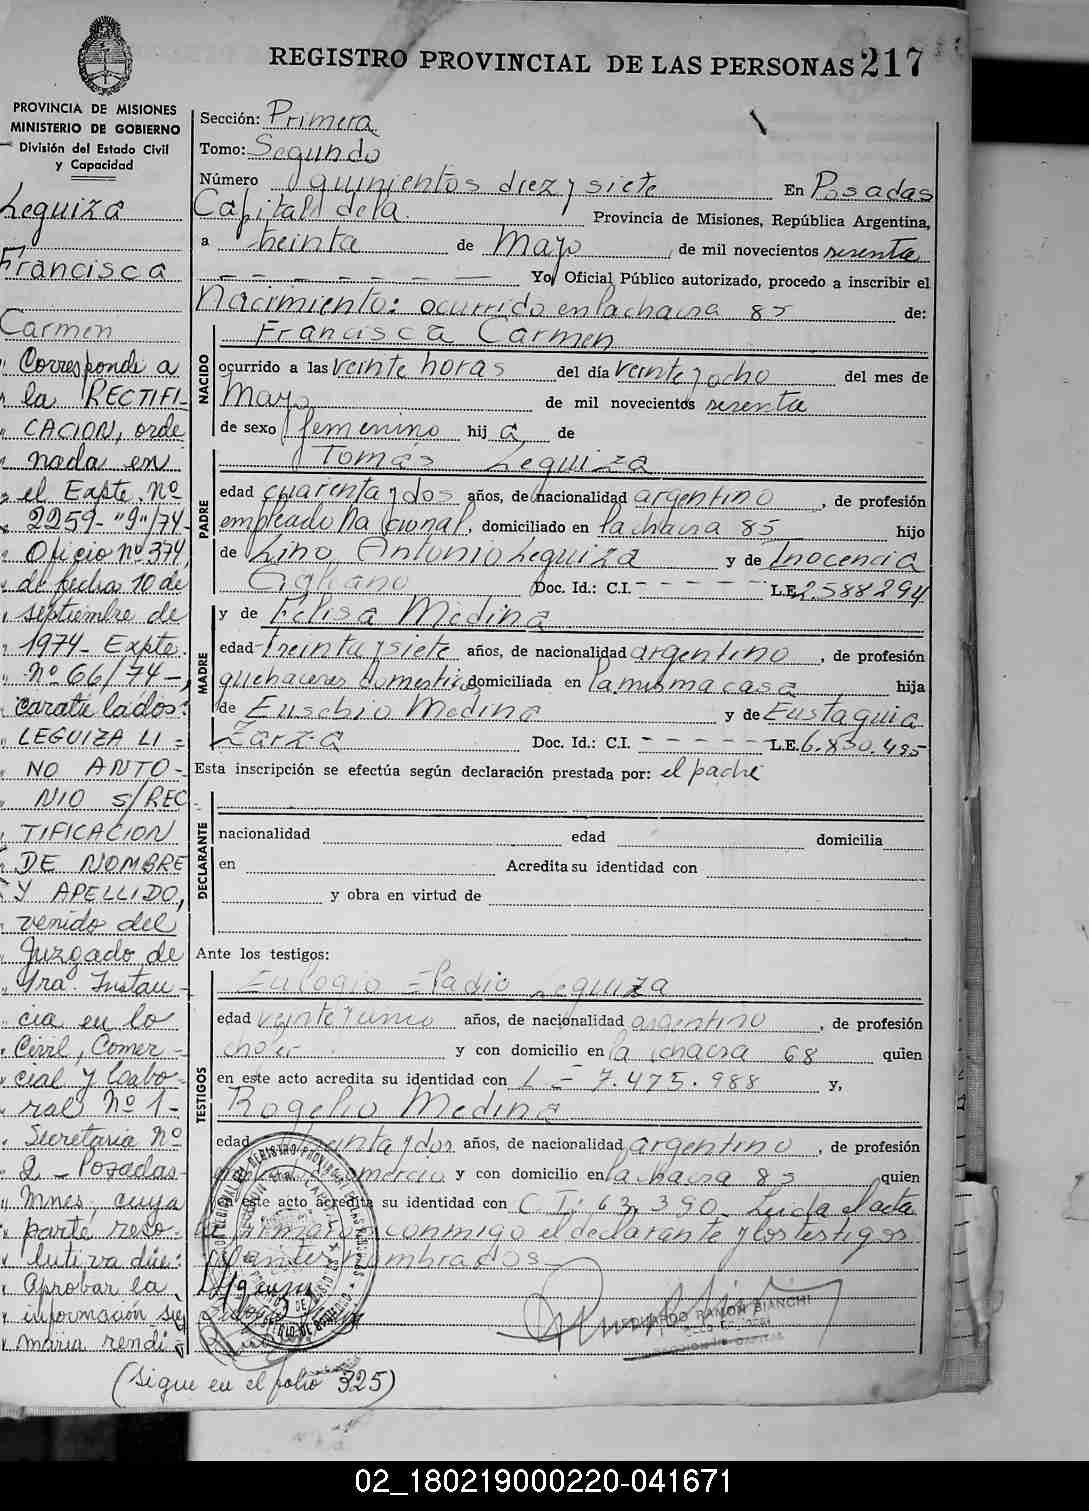 REGISTRO PROVINCIAL DE LAS PERSONAS 217
PROVINCIA DE MISIONES
MINISTERIO DE GOBIERNO
División del Estado Civil
y Capacidad
Leguiza
Francisca
Carmen
Corresponde a
la RECTIFI-
CACION, orde
nada en
el Expte. Nº
2259-"9"/74-
Oficio nº 374,
de fecha 10 de
septiembre de
1974- Expte.
Nº 66/74-,
caratulados:
LEGUIZA LI=
NO ANTO-
NIO S/REC
TIFICACION
DE NOMBRE
Y APELLIDO,
venido del
Juzgado de
1ra. Instan-
cia en lo
Civil, Comer-
cial y Labo-
ral Nº 1-
Secretaria Nº
2- Posadas-
Mnes, cuya
parte reso-
lutiva dice:
Aprobar la
información su
maria rendi
(sigue en el folio 325)
Sección: Primera
Tomo: Segundo
Número quinientos diez y siete En Posadas
Capital de la Provincia de Misiones, República Argentina,
a treinta de Mayo, de mil novecientos sesenta
Yo, Oficial Público autorizado, procedo a inscribir el
Nacimiento: ocurrido en la chacra 85 de:
NACIDO
Francisca Carmen
ocurrido a las veinte horas del día veinte y ocho del mes de
Mayo de mil novecientos sesenta
de sexo femenino hij a de
PADRE
Tomás Leguiza
edad cuarenta y dos años, de nacionalidad argentino, de profesión
empleado Nacional, domiciliado en la chacra 85 hijo
de Lino Antonio Leguiza y de Inocencia
Doc. Id.: C.I. - - - - - - L.E. 2.588294
MADRE
y de Felisa Medina
edad treinta y siete años, de nacionalidad argentino, de profesión
quehaceres domesticos domiciliada en la misma casa hija
de Eusebio Medina y de Eustaquia
Zarza Doc. Id.: C.I. - - - - - - L.E. 6.830.495
Esta inscripción se efectúa según declaración prestada por: el padre
DECLARANTE
nacionalidad edad domicilia
en Acredita su identidad con
y obra en virtud de
Ante los testigos:
TESTIGOS
Eulogio Eladio Leguiza
edad veinte y uno años, de nacionalidad argentino, de profesión
chofer y con domicilio en la chacra 68 quien
en este acto acredita su identidad con L E 7.475.988 y,
Rogelio Medina
edad treinta y dos años, de nacionalidad argentino, de profesión
comercio y con domicilio en la chacra 85 quien
en este acto acredita su identidad con C.I. 63,390. Leida el acta
firmaron conmigo el declarante y los testigos
antes nombrados-
EDUARDO RAMON BIANCHI
02_180219000220-041671